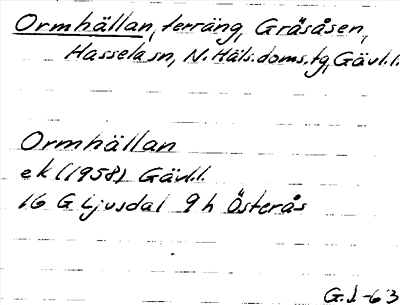 Ormhällan, terräng, Gråsåsen,
Hassela sn, N. Häls. doms. tg, Gävl. l.
Ormhällan
ek (1958) Gävl. l.
16 G Ljusdal 9 h Österås
G. J-63